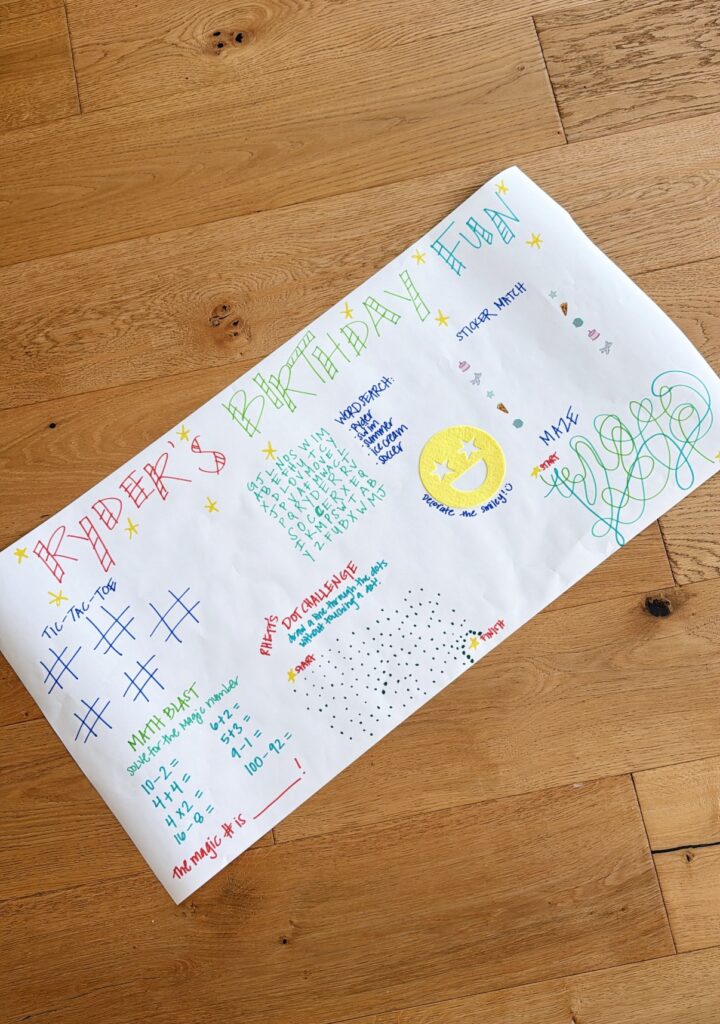 RYDER'S BIRTHDAY FUN
TIC-TAC-TOE
MATH BLAST
solve for the Magic number
10-2=
4+4=
4x2=
16-8=
6+2=
5+3=
9-1=
100-92=
The magic # is ______!
WORD SEARCH:
· Ryder
· swim
· summer
· ice cream
· soccer
RHETT'S
DOT CHALLENGE
draw a line through the dots
without touching a dot!
START
FINISH
STICKER MATCH
decorate the smiley!
MAZE
START